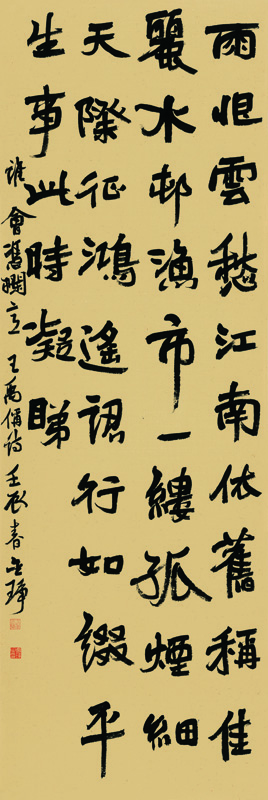 雨恨雲愁江南依舊稱佳
麗水邨漁市一縷孤煙細
天際征鴻遙認行如綴平
生事此時凝睇
誰會憑欄意 王禹偁詩 壬辰春